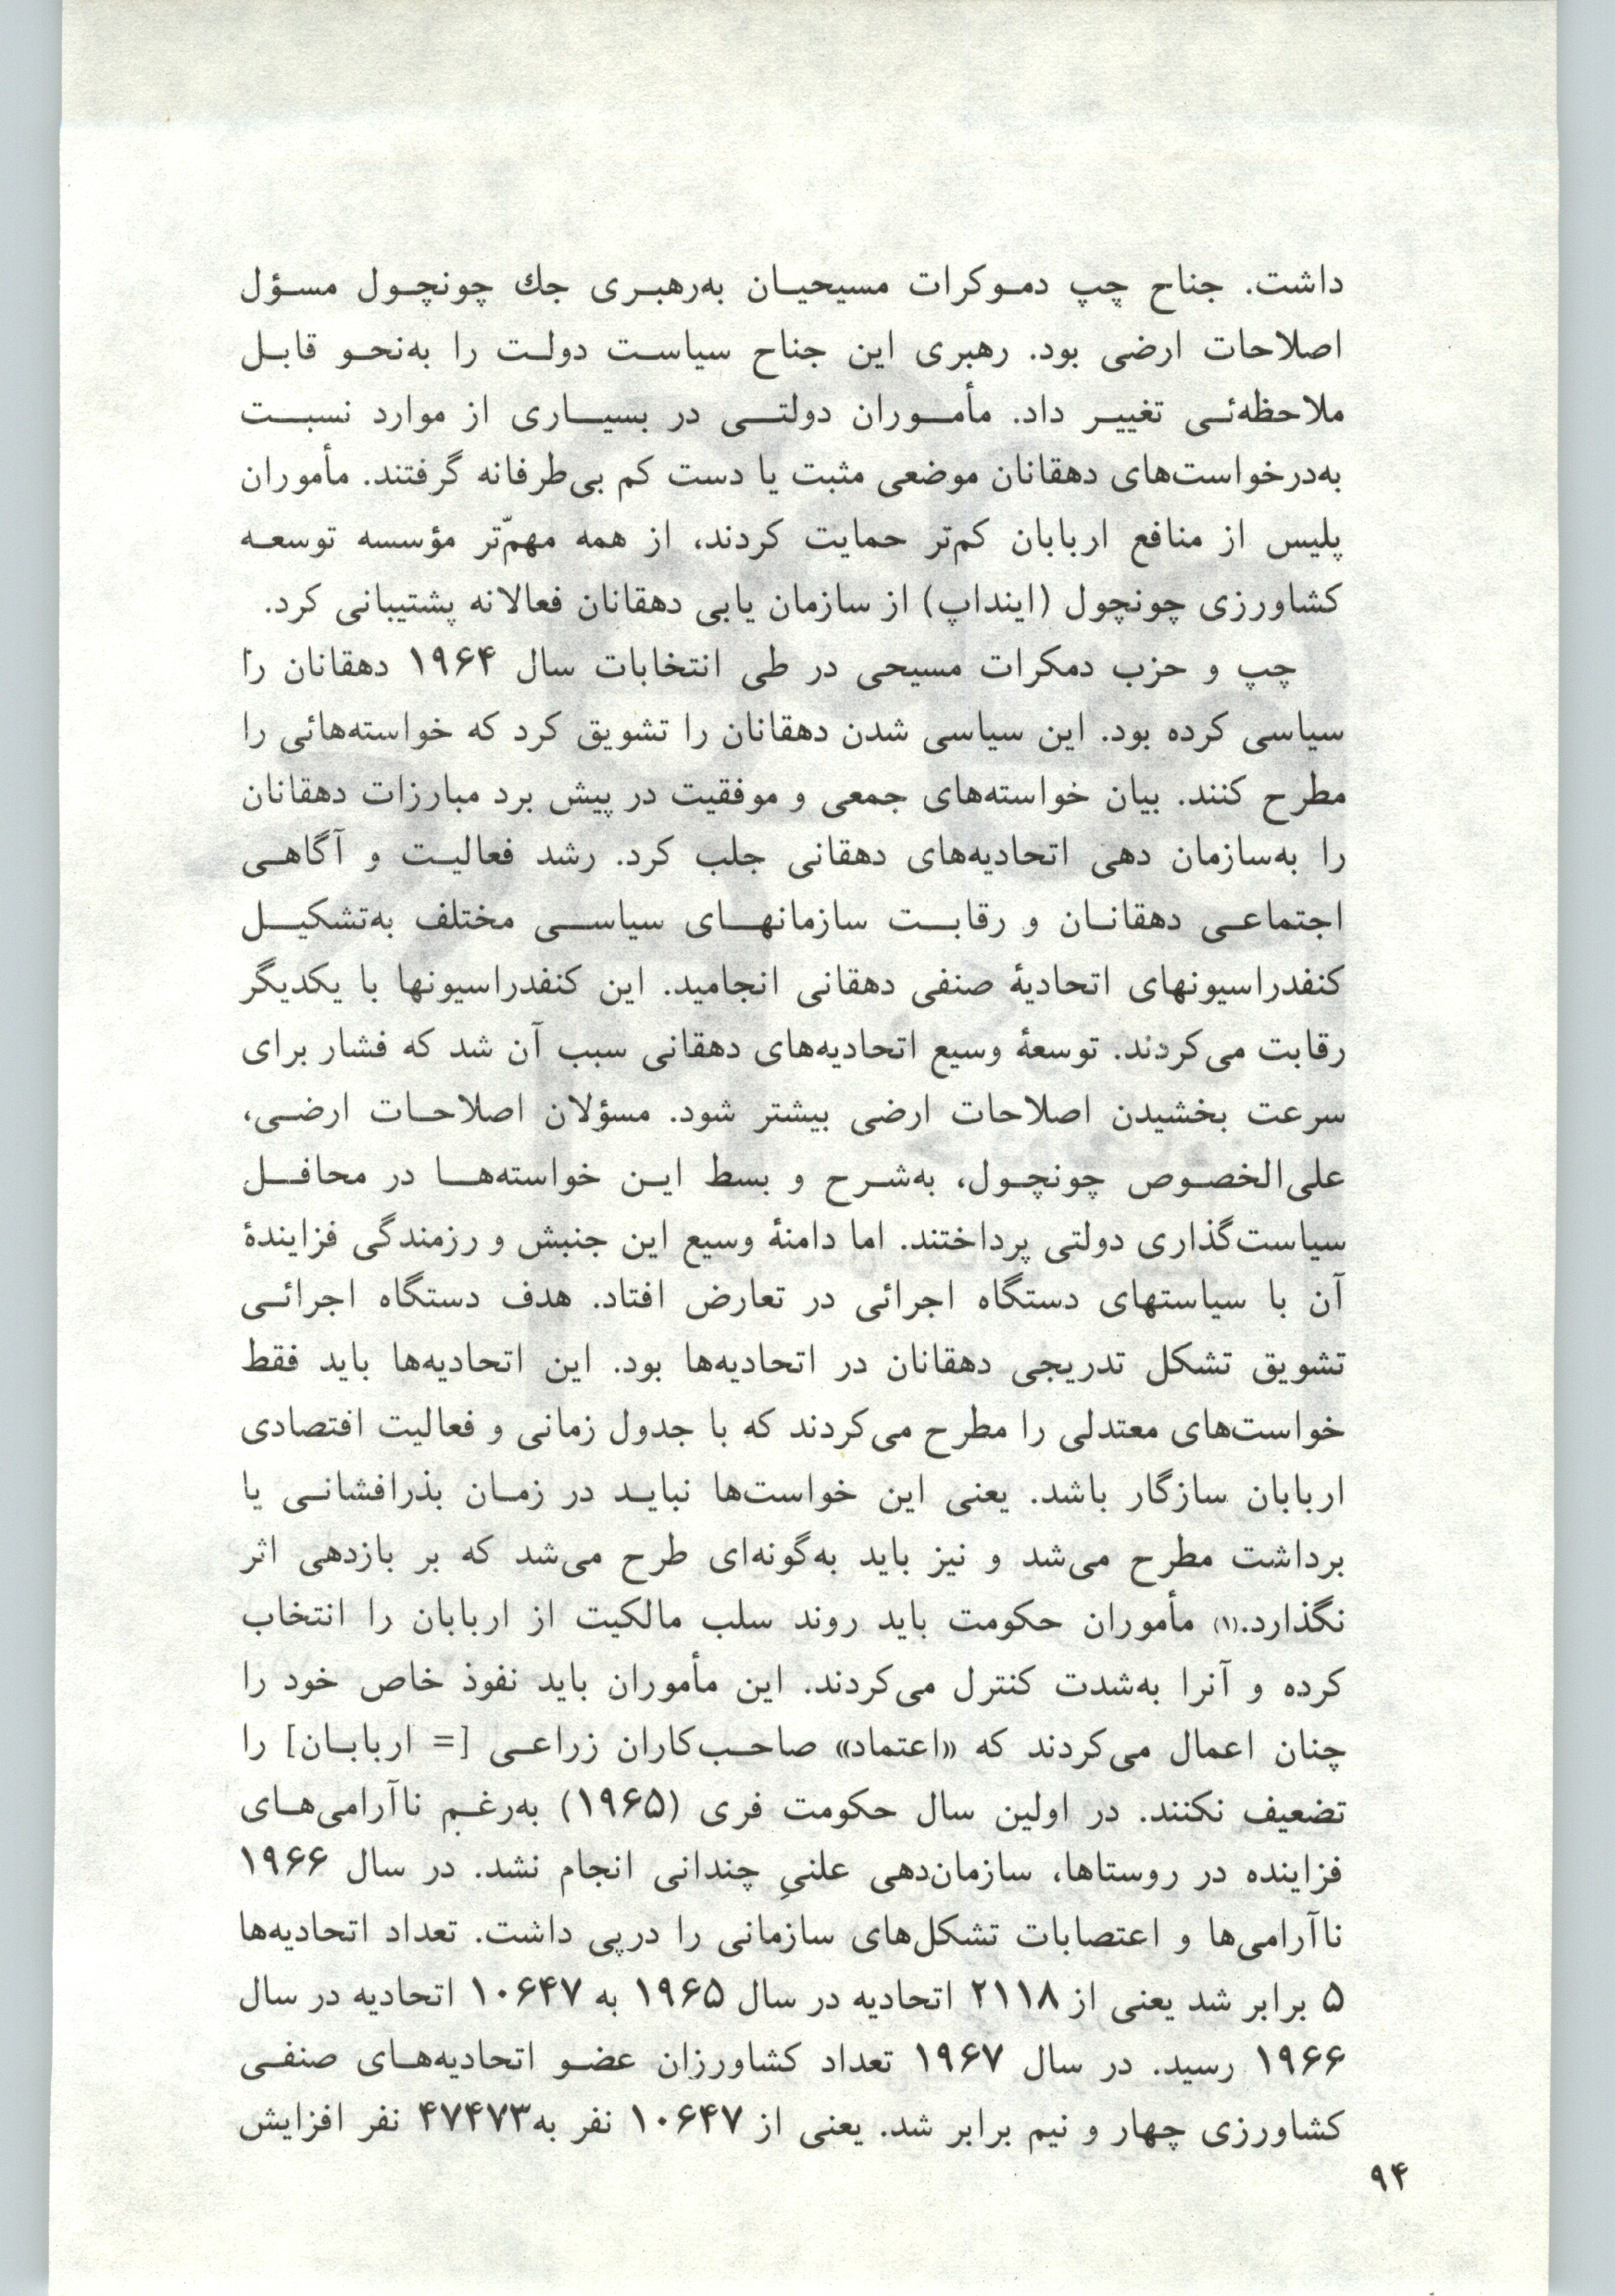 داشت. جناح چپ دموکرات مسیحیان به‌رهبری جك چونچول مسؤل
اصلاحات ارضی بود. رهبری این جناح سیاست دولت را به‌نحو قابل
ملاحظه‌ئی تغییر داد. مأموران دولتی در بسیاری از موارد نسبت
به‌درخواست‌های دهقانان موضعی مثبت یا دست کم بی‌طرفانه گرفتند. مأموران
پلیس از منافع اربابان کم‌تر حمایت کردند، از همه مهمّ‌تر مؤسسه توسعه
کشاورزی چونچول (اینداپ) از سازمان یابی دهقانان فعالانه پشتیبانی کرد.
چپ و حزب دمکرات مسیحی در طی انتخابات سال ۱۹۶۴ دهقانان را
سیاسی کرده بود. این سیاسی شدن دهقانان را تشویق کرد که خواسته‌هائی را
مطرح کنند. بیان خواسته‌های جمعی و موفقیت در پیش برد مبارزات دهقانان
را به‌سازمان دهی اتحادیه‌های دهقانی جلب کرد. رشد فعالیت و آگاهی
اجتماعی دهقانان و رقابت سازمانهای سیاسی مختلف به‌تشکیل
کنفدراسیونهای اتحادیهٔ صنفی دهقانی انجامید. این کنفدراسیونها با یکدیگر
رقابت می‌کردند. توسعهٔ وسیع اتحادیه‌های دهقانی سبب آن شد که فشار برای
سرعت بخشیدن اصلاحات ارضی بیشتر شود. مسؤلان اصلاحات ارضی،
علی‌الخصوص چونچول، به‌شرح و بسط این خواسته‌ها در محافل
سیاست‌گذاری دولتی پرداختند. اما دامنهٔ وسیع این جنبش و رزمندگی فزایندهٔ
آن با سیاستهای دستگاه اجرائی در تعارض افتاد. هدف دستگاه اجرائی
تشویق تشکل تدریجی دهقانان در اتحادیه‌ها بود. این اتحادیه‌ها باید فقط
خواست‌های معتدلی را مطرح می‌کردند که با جدول زمانی و فعالیت اقتصادی
اربابان سازگار باشد. یعنی این خواست‌ها نباید در زمان بذرافشانی یا
برداشت مطرح می‌شد و نیز باید به‌گونه‌ای طرح می‌شد که بر بازدهی اثر
نگذارد.(۱) مأموران حکومت باید روند سلب مالکیت از اربابان را انتخاب
کرده و آنرا به‌شدت کنترل می‌کردند. این مأموران باید نفوذ خاص خود را
چنان اعمال می‌کردند که «اعتماد» صاحب‌کاران زراعی [= اربابان] را
تضعیف نکنند. در اولین سال حکومت فری (۱۹۶۵) به‌رغم ناآرامی‌های
فزاینده در روستاها، سازمان‌دهی علنیِ چندانی انجام نشد. در سال ۱۹۶۶
ناآرامی‌ها و اعتصابات تشکل‌های سازمانی را درپی داشت. تعداد اتحادیه‌ها
۵ برابر شد یعنی از ۲۱۱۸ اتحادیه در سال ۱۹۶۵ به ۱۰۶۴۷ اتحادیه در سال
۱۹۶۶ رسید. در سال ۱۹۶۷ تعداد کشاورزان عضو اتحادیه‌های صنفی
کشاورزی چهار و نیم برابر شد. یعنی از ۱۰۶۴۷ نفر به۴۷۴۷۳ نفر افزایش
۹۴